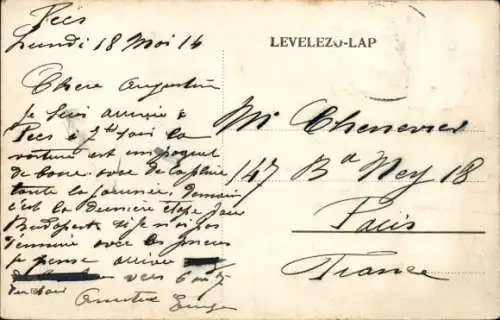 Pecs
Lundi 18 Mai 14
LEVELEZŐ-LAP
Chere Augustine
Je suis arrivée à
Pecs à 2 h la
voiture est un paquet
de boue de la pluie
toute la journée, demain
c'est la dernière étape pour
Budapest si je n'ai pas
d'ennuie avec les pneus
je pense arriver
vers 6 ou 7
du soir
Mr Chenevier
147 Bd Ney 18
Paris
France